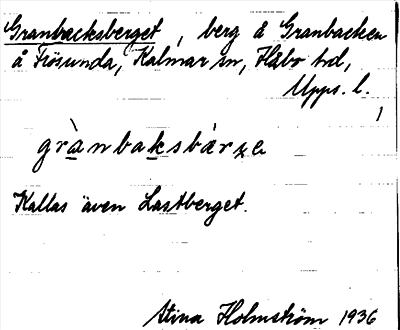 Granbacksberget, berg å Granbacken
å Frösunda, Kalmar sn, Håbo hd,
Upps. l.
grànbaksbàrʒe
Kallas även Lastberget.
Stina Holmström 1936